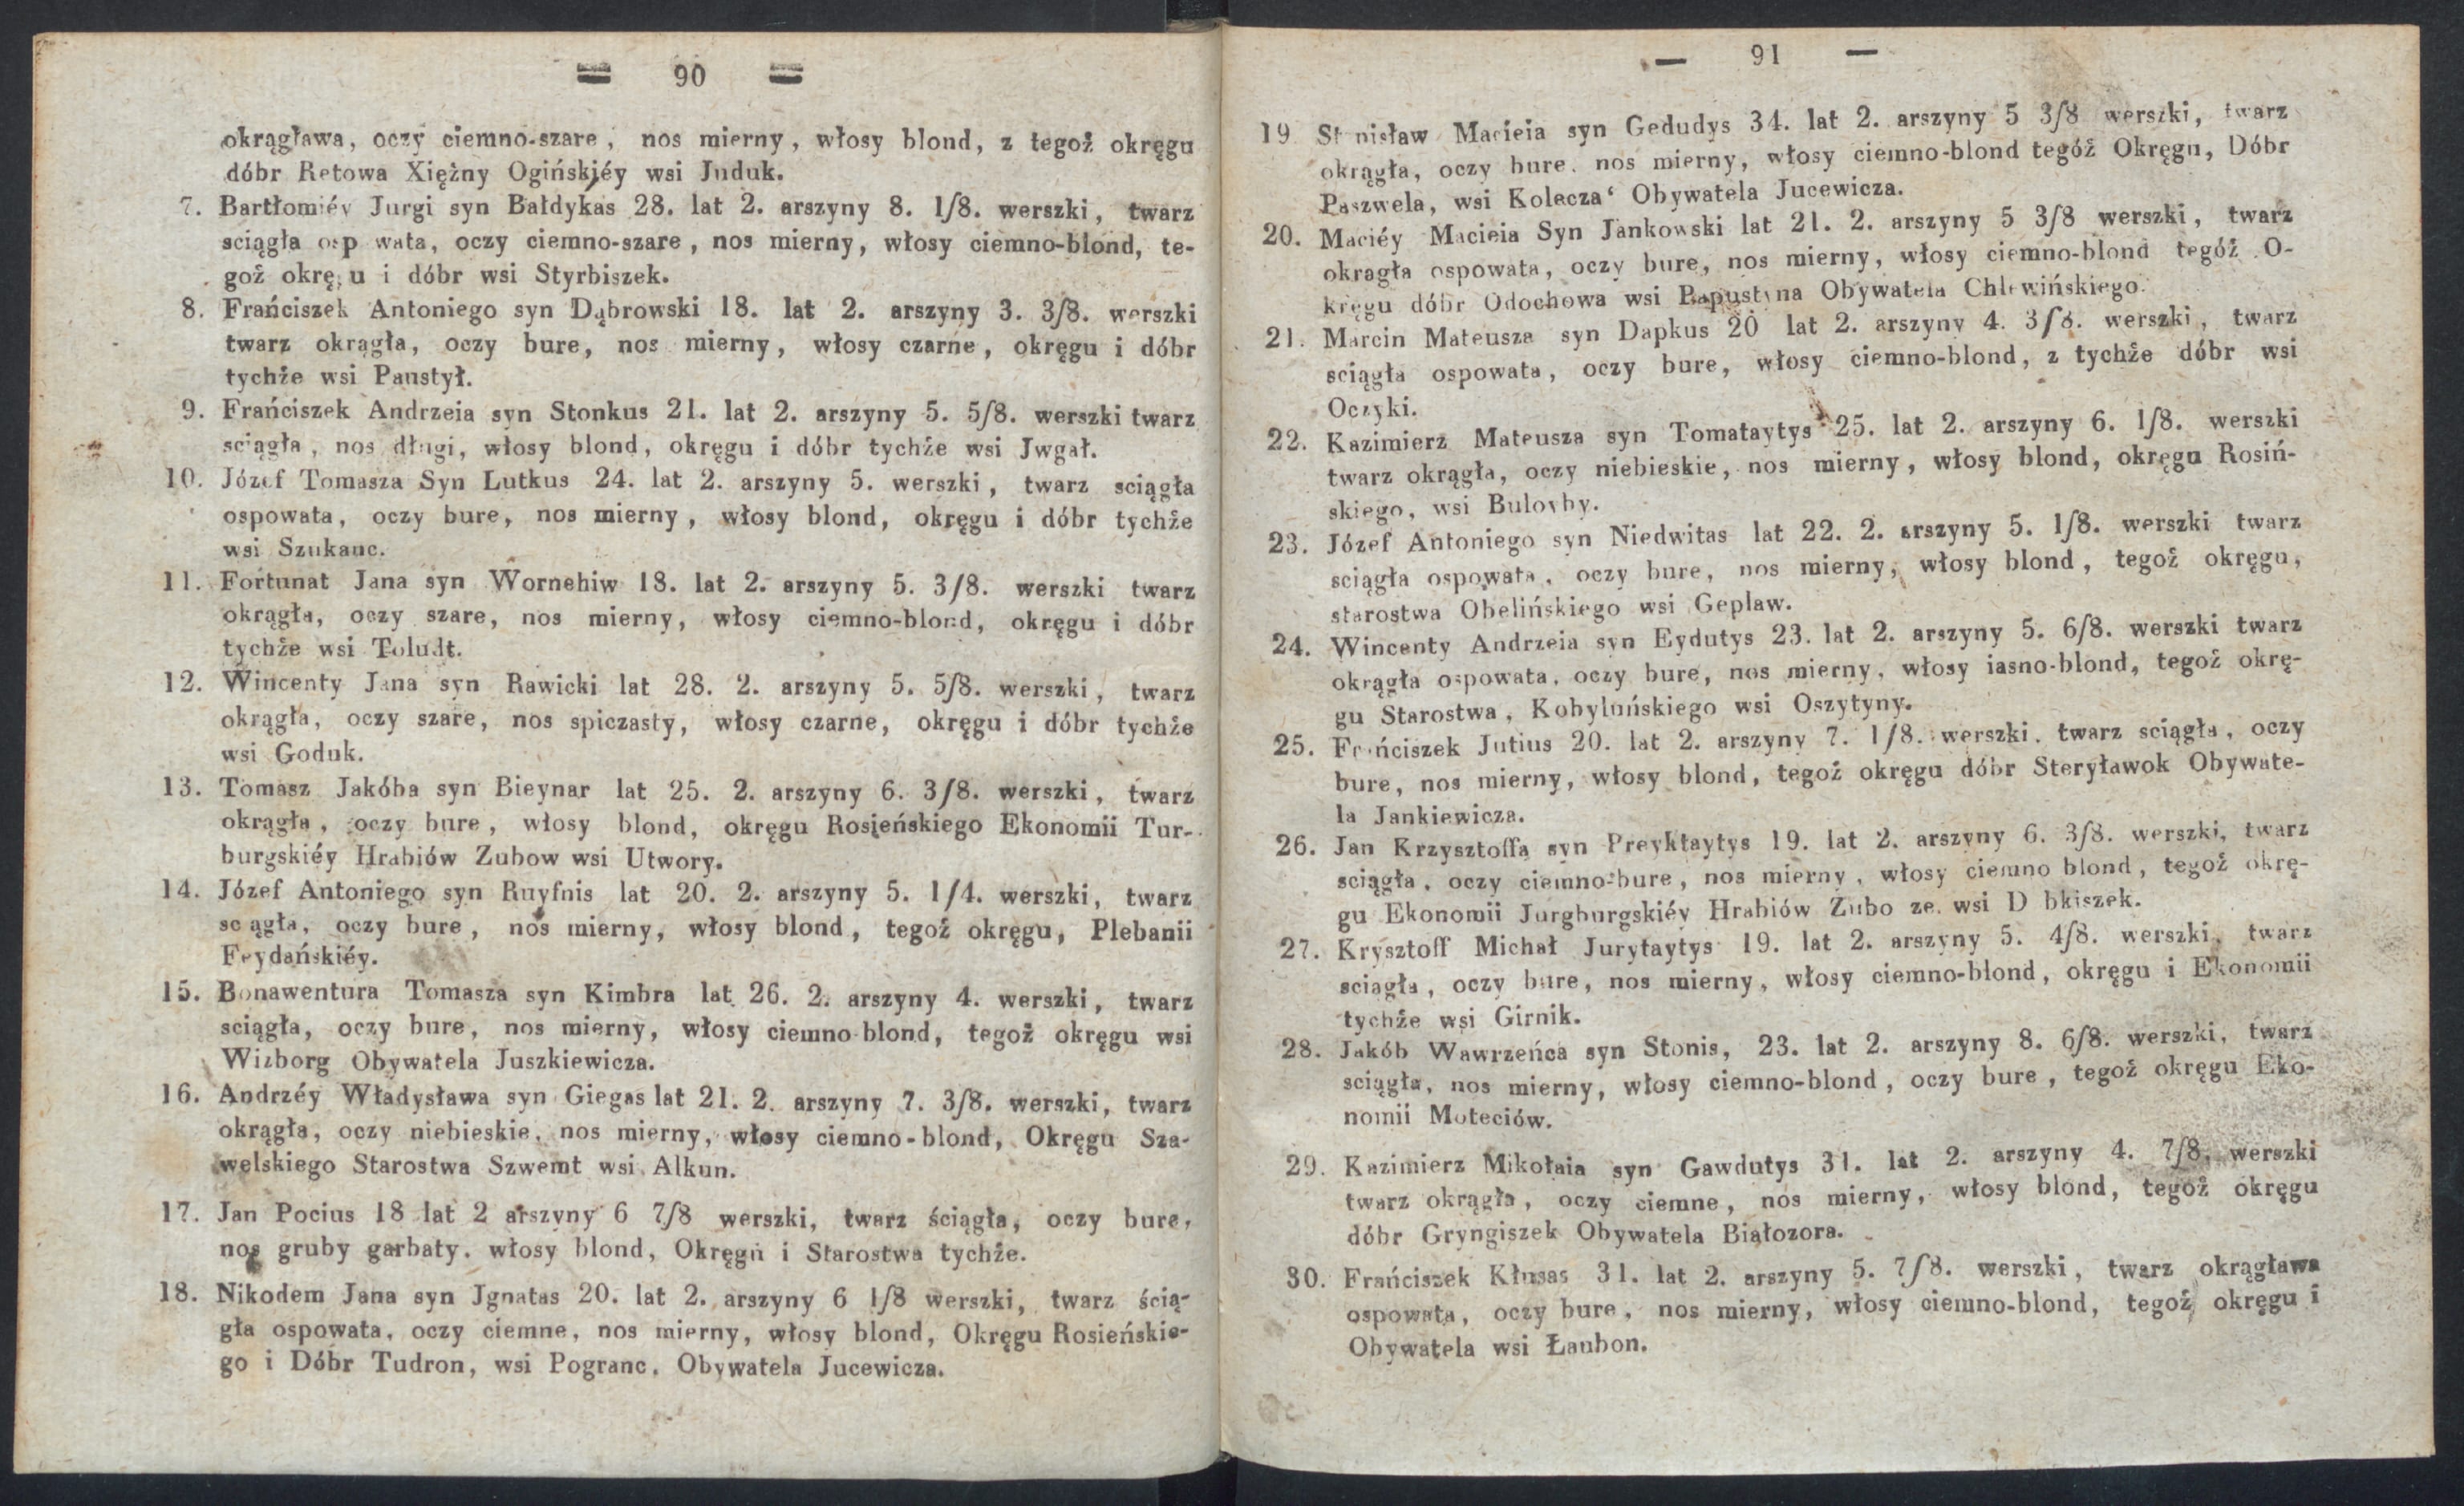 = 90 =
okrągława, oczy ciemno-szare, nos mierny, włosy blond, z tegoż okręgu
dóbr Retowa Xiężny Ogińskiéy wsi Juduk.
7. Bartłomiéy Jurgi syn Bałdykas 28. lat 2. arszyny 8. 1/8. werszki, twarz
sciągła osp wata, oczy ciemno-szare, nos mierny, włosy ciemno-blond, te-
goż okrę, u i dóbr wsi Styrbiszek.
8. Frańciszek Antoniego syn Dąbrowski 18. lat 2. arszyny 3. 3/8. werszki
twarz okrągła, oczy bure, nos mierny, włosy czarne, okręgu i dóbr
tychże wsi Paustył.
9. Frańciszek Andrzeia syn Stonkus 21. lat 2. arszyny 5. 5/8. werszki twarz
sciągła, nos długi, włosy blond, okręgu i dóbr tychże wsi Jwgał.
10. Józef Tomasza Syn Lutkus 24. lat 2. arszyny 5. werszki, twarz sciągła
ospowata, oczy bure, nos mierny, włosy blond, okręgu i dóbr tychże
wsi Szukanc.
11. Fortunat Jana syn Wornehiw 18. lat 2. arszyny 5. 3/8. werszki twarz
okrągła, oczy szare, nos mierny, włosy ciemno-blond, okręgu i dóbr
tychże wsi Toludt.
12. Wincenty Jana syn Rawicki lat 28. 2. arszyny 5. 5/8. werszki, twarz
okrągła, oczy szare, nos spiczasty, włosy czarne, okręgu i dóbr tychże
wsi Goduk.
13. Tomasz Jakóba syn Bieynar lat 25. 2. arszyny 6. 3/8. werszki, twarz
okrągła, oczy bure, włosy blond, okręgu Rosieńskiego Ekonomii Tur-
burgskiéy Hrabiów Zubow wsi Utwory.
14. Józef Antoniego syn Ruyfnis lat 20. 2. arszyny 5. 1/4. werszki, twarz
sc ągła, oczy bure, nos mierny, włosy blond, tegoż okręgu, Plebanii
Feydańskiéy.
15. Bonawentura Tomasza syn Kimbra lat 26. 2. arszyny 4. werszki, twarz
sciągła, oczy bure, nos mierny, włosy ciemno blond, tegoż okręgu wsi
Wizborg Obywatela Juszkiewicza.
16. Andrzéy Władysława syn Giegas lat 21. 2. arszyny 7. 3/8. werszki, twarz
okrągła, oczy niebieskie, nos mierny, włosy ciemno-blond, Okręgu Sza-
welskiego Starostwa Szwemt wsi Alkun.
17. Jan Pocius 18 lat 2 arszyny 6 7/8 werszki, twarz ściągła, oczy bure,
nos gruby garbaty. włosy blond, Okręgu i Starostwa tychże.
18. Nikodem Jana syn Jgnatas 20. lat 2. arszyny 6 1/8 werszki, twarz ścią-
gła ospowata, oczy ciemne, nos mierny, włosy blond, Okręgu Rosieńskie-
go i Dóbr Tudron, wsi Pogranc, Obywatela Jucewicza.
— 91 —
19 St nisław Macieia syn Gedudys 34. lat 2. arszyny 5 3/8 werszki, twarz
okrągła, oczy bure. nos mierny, włosy ciemno-blond tegóż Okręgu, Dóbr
Paszwela, wsi Kolecza‘ Obywatela Jucewicza.
20. Maciéy Macieia Syn Jankowski lat 21. 2. arszyny 5 3/8 werszki, twarz
okrągła ospowata, oczy bure, nos mierny, włosy ciemno-blond tegóż O-
kręgu dóbr Odochowa wsi Papustyna Obywatela Chlewińskiego.
21. Marcin Mateusza syn Dapkus 20 lat 2. arszyny 4. 3/8. werszki, twarz
sciągła ospowata, oczy bure, włosy ciemno-blond, z tychże dóbr wsi
Oczyki.
22. Kazimierz Mateusza syn Tomataytys 25. lat 2. arszyny 6. 1/8. werszki
twarz okrągła, oczy niebieskie, nos mierny, włosy blond, okręgu Rosiń-
skiego, wsi
23. Józef Antoniego syn Niedwitas lat 22. 2. arszyny 5. 1/8. werszki twarz
sciągła ospowata, oczy bure, nos mierny, włosy blond, tegoż okręgu,
starostwa Obelińskiego wsi Geplaw.
24. Wincenty Andrzeia syn Eydutys 23. lat 2. arszyny 5. 6/8. werszki twarz
okrągła ospowata, oczy bure, nos mierny, włosy iasno-blond, tegoż okrę-
gu Starostwa, Kobylińskiego wsi Oszytyny.
25. Frańciszek Jutius 20. lat 2. arszyny 7. 1/8. werszki. twarz sciągła, oczy
bure, nos mierny, włosy blond, tegoż okręgu dóbr Steryławok Obywate-
la Jankiewicza.
26. Jan Krzysztoffa syn Preyktaytys 19. lat 2. arszyny 6. 3/8. werszki, twarz
sciągła, oczy ciemno-bure, nos mierny, włosy ciemno blond, tegoż okrę-
gu Ekonomii Jurgburgskiéy Hrabiów Zubo ze. wsi D bkiszek.
27. Krysztoff Michał Jurytaytys 19. lat 2. arszyny 5. 4/8. werszki, twarz
sciągła, oczy bure, nos mierny, włosy ciemno-blond, okręgu i Ekonomii
tychże wsi Girnik.
28. Jakób Wawrzeńca syn Stonis, 23. lat 2. arszyny 8. 6/8. werszki, twarz
sciągła, nos mierny, włosy ciemno-blond, oczy bure, tegoż okręgu Eko-
nomii Moteciów.
29. Kazimierz Mikołaia syn Gawdutys 31. lat 2. arszyny 4. 7/8. werszki
twarz okrągła, oczy ciemne, nos mierny, włosy blond, tegoż okręgu
dóbr Gryngiszek Obywatela Białozora.
30. Frańciszek Kłusas 31. lat 2. arszyny 5. 7/8. werszki, twarz okrągława
ospowata, oczy bure, nos mierny, włosy ciemno-blond, tegoż okręgu i
Obywatela wsi Łaubon.